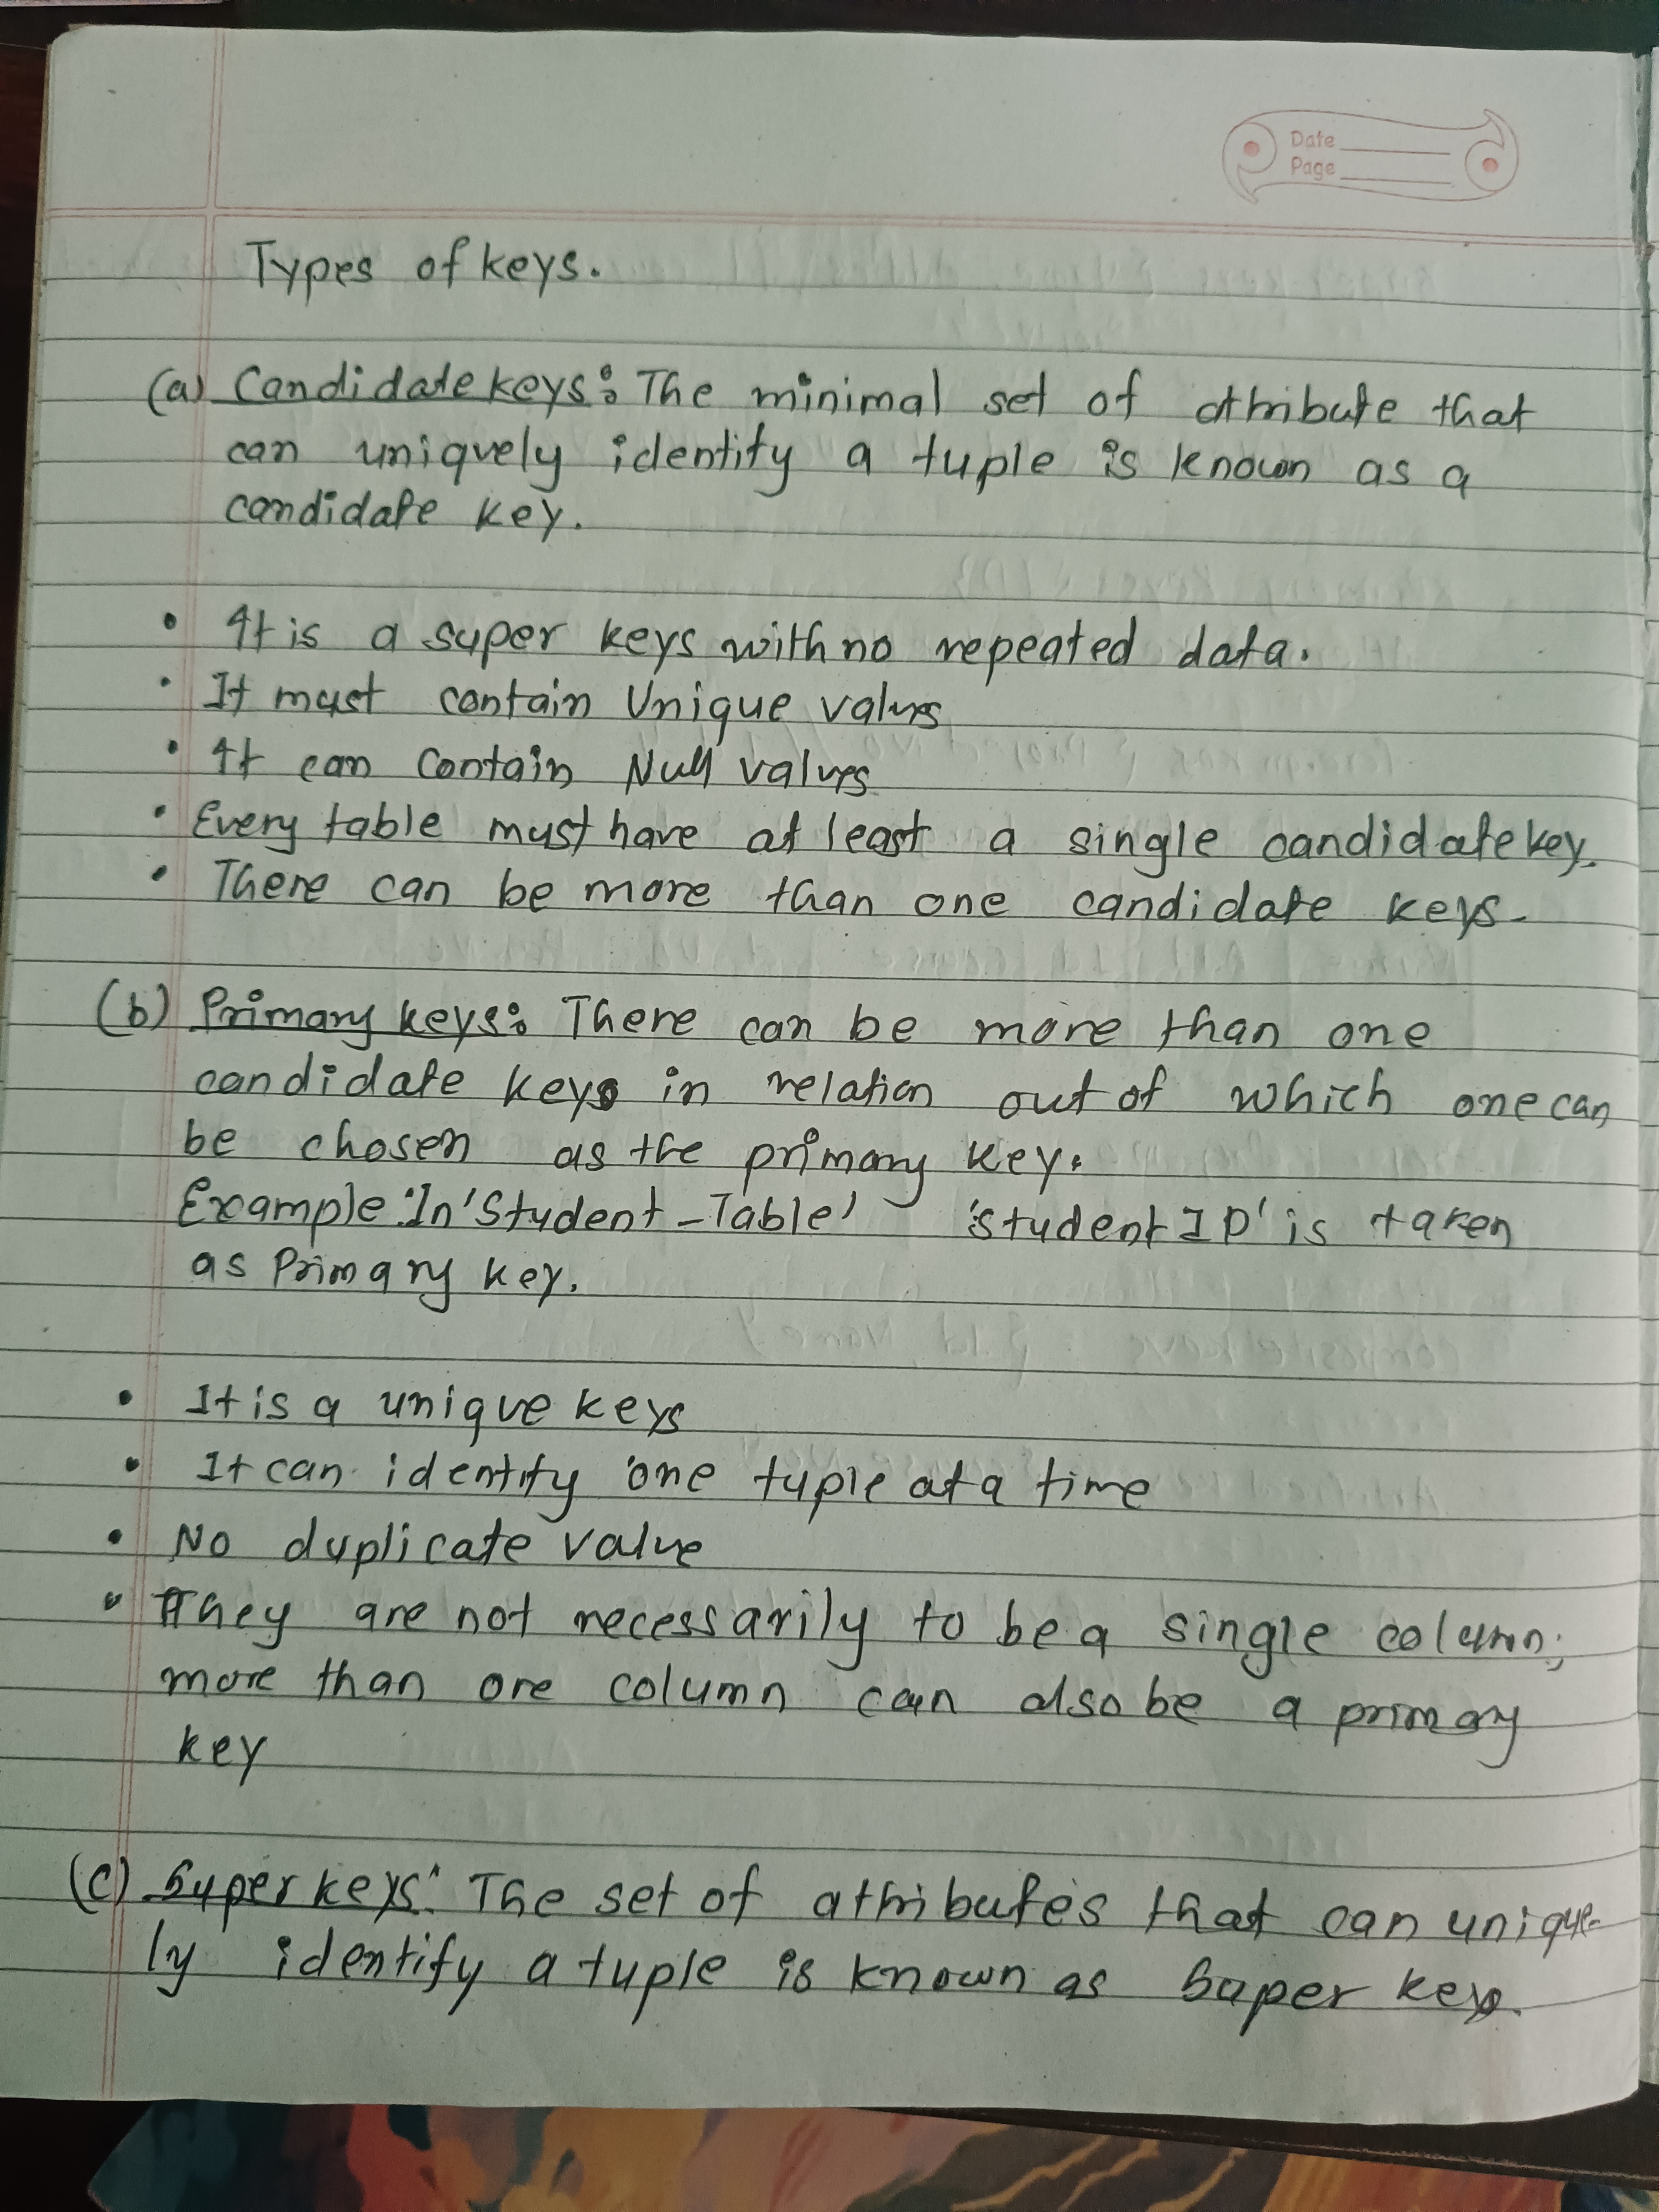 Date
Page
Types of keys.
(a) Candidate keys: The minimal set of attribute that
can uniquely identify a tuple is known as a
candidate key.
• It is a super keys with no repeated data.
• It must contain Unique values
• It can contain Null values
• Every table must have at least a single candidate key.
• There can be more than one candidate keys.
(b) Primary keys: There can be more than one
candidate keys in relation out of which one can
be chosen as the primary key.
Example: In 'Student_Table' 'student ID' is taken
as Primary key.
• It is a unique keys
• It can identify one tuple at a time
• No duplicate value
• They are not necessarily to be a single column;
more than one column can also be a primary
key
(c) Super keys: The set of attributes that can unique-
ly identify a tuple is known as Super key.